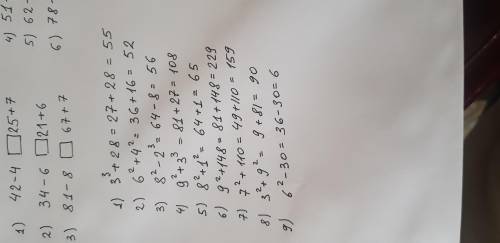 1) 42-4 □ 25+7 4) 51-
2) 34-6 □ 21+6 5) 62-
3) 81-8 □ 67+7 6) 78-
1) 3³+28=27+28=55
2) 6²+4²=36+16=52
3) 8²-2³=64-8=56
4) 9²+3³=81+27=108
5) 8²+1²=64+1=65
6) 9²+148=81+148=229
7) 7²+110=49+110=159
8) 3²+9²=9+81=90
9) 6²-30=36-30=6